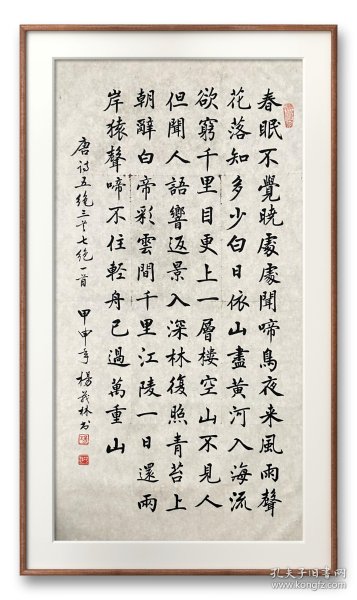 春眠不覺曉處處聞啼鳥夜来風雨聲
花落知多少白日依山盡黄河入海流
欲窮千里目更上一層樓空山不見人
但聞人語響返景入深林復照青苔上
朝辭白帝彩雲間千里江陵一日還兩
岸猿聲啼不住輕舟已過萬重山
唐詩五絶三首七絶一首
甲申年 楊茂林书
孔夫子旧书网
www.kongfz.com